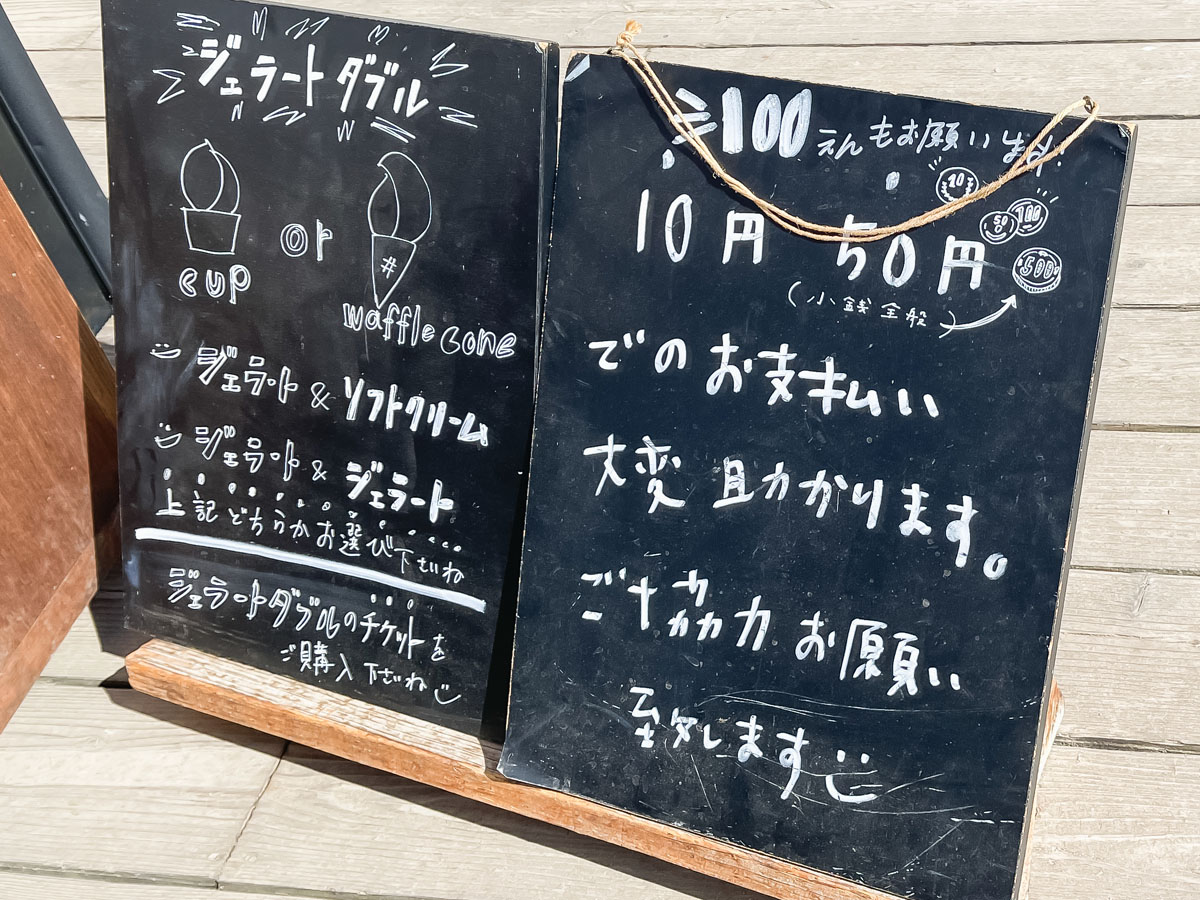 ジェラートダブル
cup or waffle cone
ジェラート & ソフトクリーム
ジェラート & ジェラート
上記どちらかお選び下さいね
ジェラートダブルのチケットを
ご購入下さいね
100えんもお願います
10
10円 50円
50 100
500
(小銭全般)
でのお支払い
大変助かります。
ご協力お願い
至致します